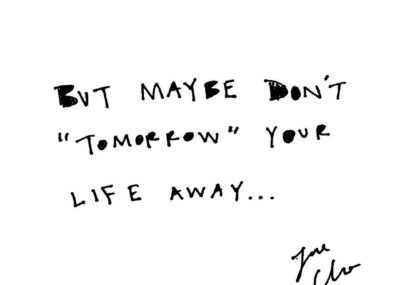 BUT MAYBE DON'T
"TOMORROW" YOUR
LIFE AWAY...